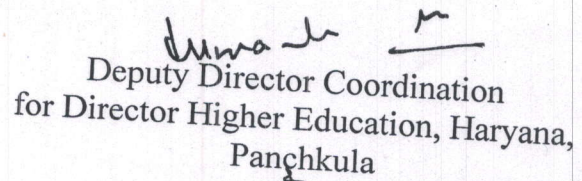 Deputy Director Coordination
for Director Higher Education, Haryana,
Panchkula